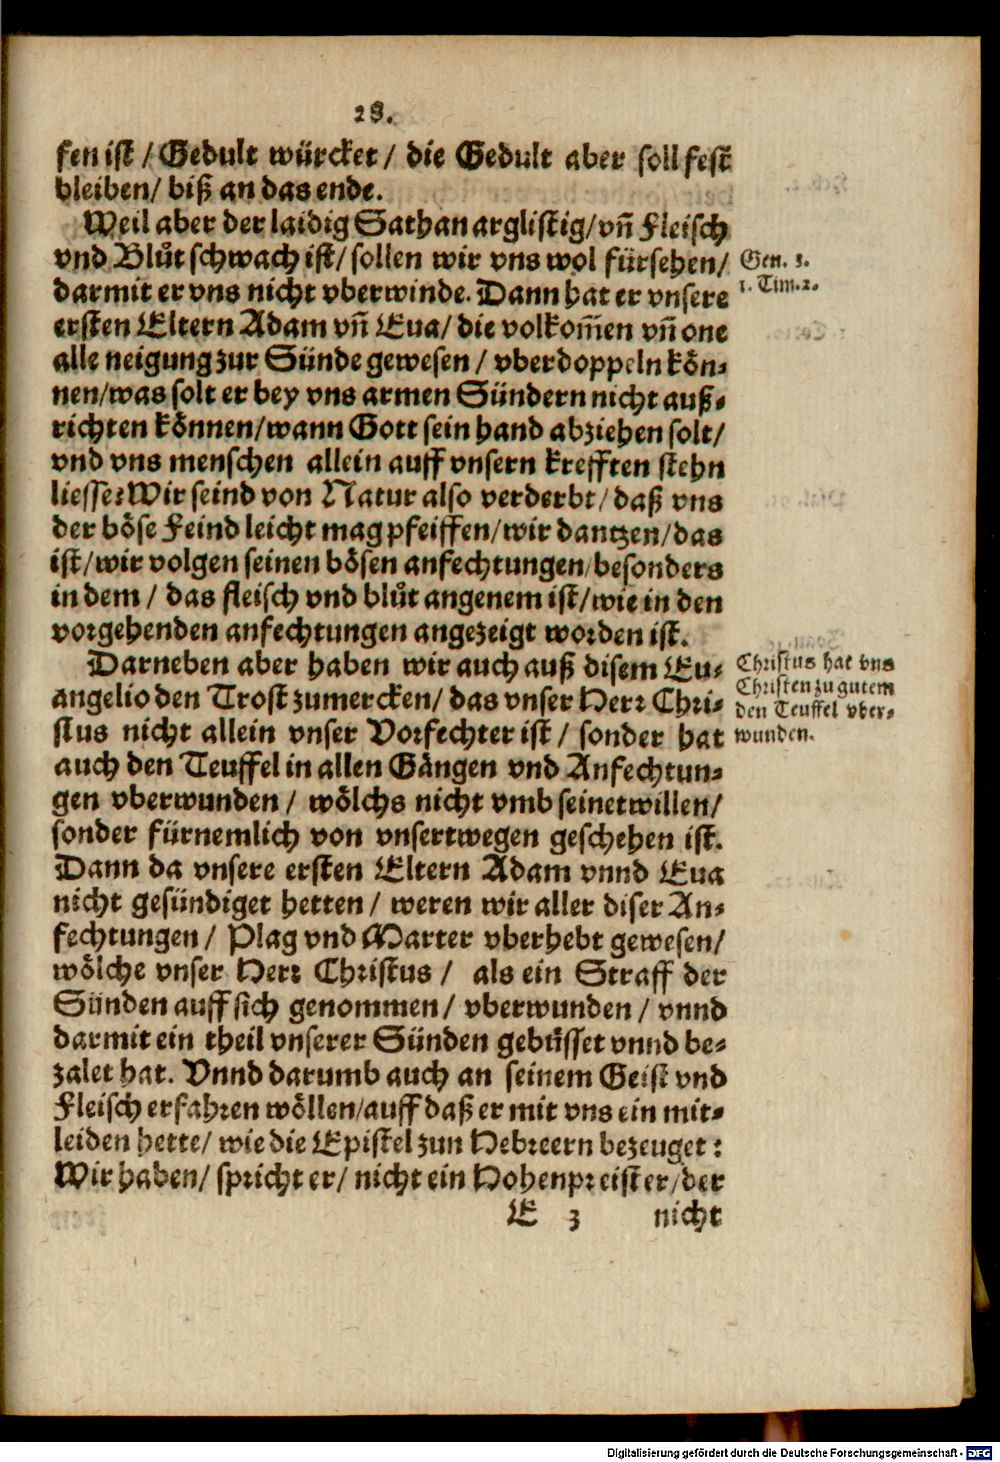 28.
fen ist / Gedult würcket / die Gedult aber soll fest
bleiben / biß an das ende.
Weil aber der laidig Sathan arglistig / vñ Fleisch
vnd Blůt schwach ist / sollen wir vns wol fürsehen /
Gen. 3.
darmit er vns nicht vberwinde. Dann hat er vnsere
1. Tim. 2.
ersten Eltern Adam vñ Eua / die volkom̃en vñ one
alle neigung zur Sünde gewesen / vberdoppeln kön⸗
nen / was solt er bey vns armen Sündern nicht auß⸗
richten können / wann Gott sein hand abziehen solt /
vnd vns menschen allein auff vnsern krefften stehn
liesse? Wir seind von Natur also verderbt / daß vns
der böse Feind leicht mag pfeiffen / wir dantzen / das
ist / wir volgen seinen bösen anfechtungen / besonders
in dem / das fleisch vnd blůt angenem ist / wie in den
vorgehenden anfechtungen angezeigt worden ist.
Darneben aber haben wir auch auß disem Eu⸗
angelio den Trost zumercken / das vnser Herr Chri⸗
stus nicht allein vnser Vorfechter ist / sonder hat
Christus hat vns
Christen zu gutem
den Teuffel vber⸗
wunden.
auch den Teuffel in allen Gängen vnd Anfechtun⸗
gen vberwunden / wölchs nicht vmb seinetwillen /
sonder fürnemlich von vnsertwegen geschehen ist.
Dann da vnsere ersten Eltern Adam vnnd Eua
nicht gesündiget hetten / weren wir aller diser An⸗
fechtungen / Plag vnd Marter vberhebt gewesen /
wölche vnser Herr Christus / als ein Straff der
Sünden auff sich genommen / vberwunden / vnnd
darmit ein theil vnserer Sünden gebüsset vnnd be⸗
zalet hat. Vnnd darumb auch an seinem Geist vnd
Fleisch erfahren wöllen / auff daß er mit vns ein mit⸗
leiden hette / wie die Epistel zun Hebreern bezeuget :
Wir haben / spricht er / nicht ein Hohenpreister / der
E 3 nicht
Digitalisierung gefördert durch die Deutsche Forschungsgemeinschaft - DFG